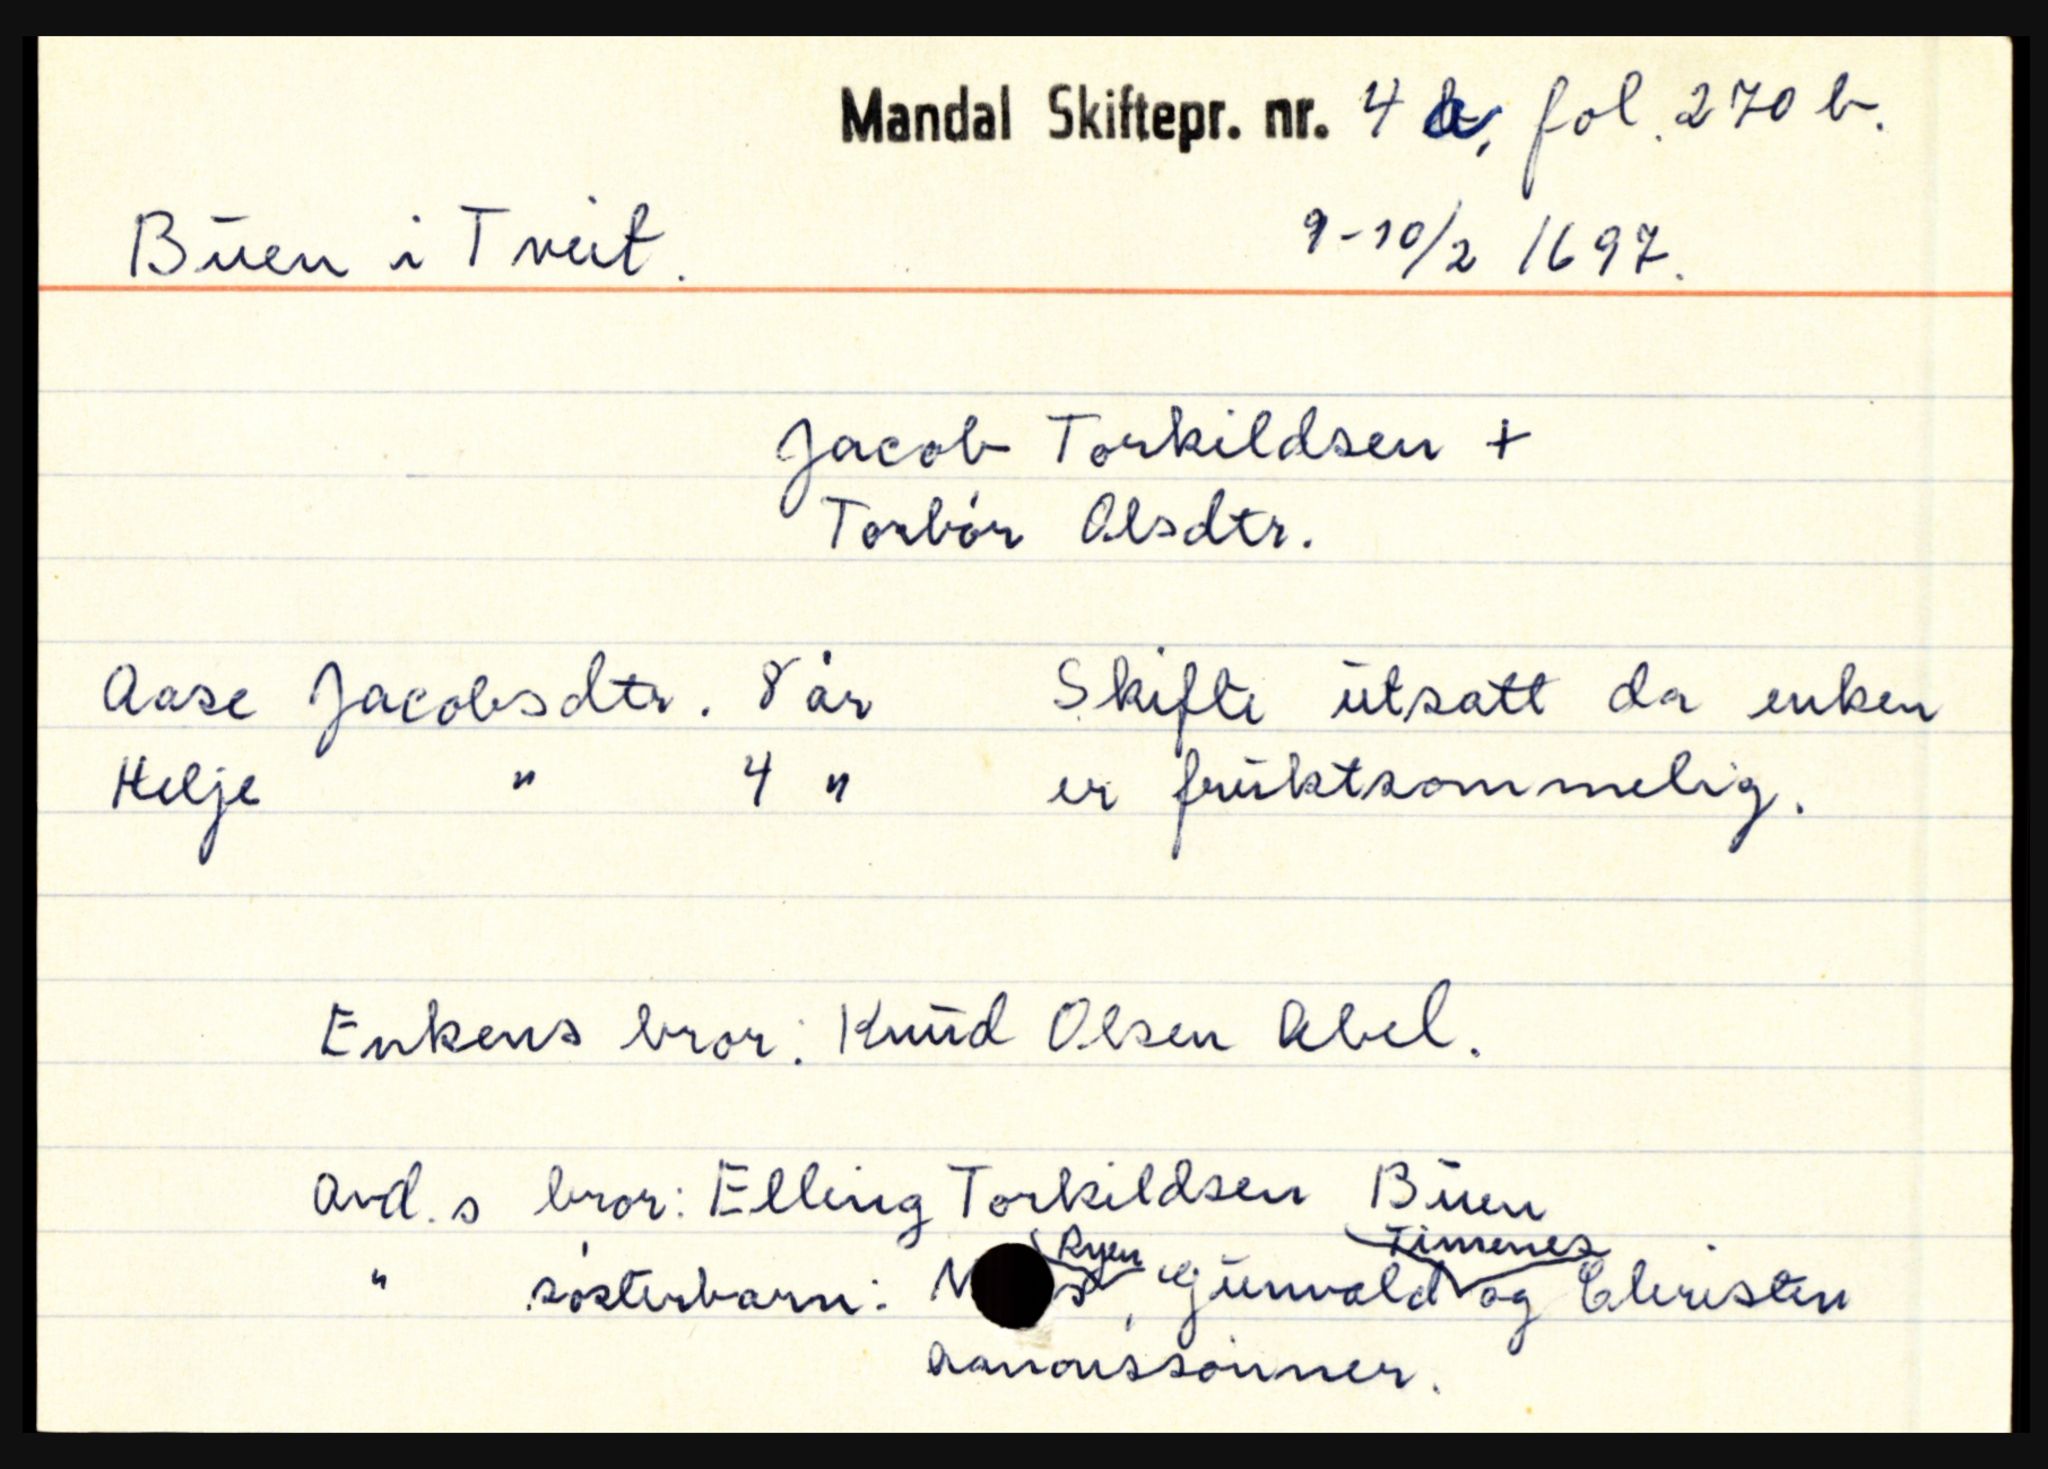 Mandal Skiftepr. nr. 4 a, fol. 270 b.
Buen i Tveit. 9-10/2 1697.
Jacob Torkildsen +
Torbór Olsdtr.
Aase Jacobsdtr. 8 år Skifte utsatt da enken
Helje " 4 " er fruktsommelig.
Enkens bror: Knud Olsen Abel.
Avd. s bror: Elling Torkildsen Buen
Ryen Timenes
" sósterbarn: N s, Gunvald og Christen
Aanonssónner.